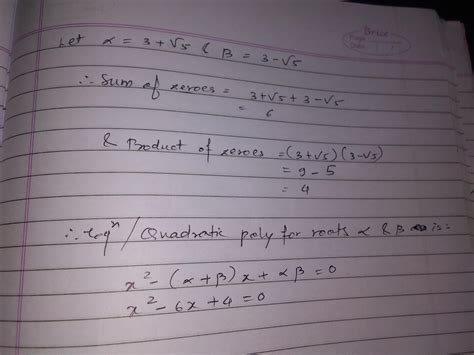 Let α = 3 + √5 & β = 3 - √5
∴ Sum of zeroes = 3 + √5 + 3 - √5
= 6
& Product of zeroes = (3+√5) (3-√5)
= 9 - 5
= 4
∴ eqⁿ / Quadratic poly for roots α & β is:
x² - (α + β) x + α β = 0
x² - 6x + 4 = 0